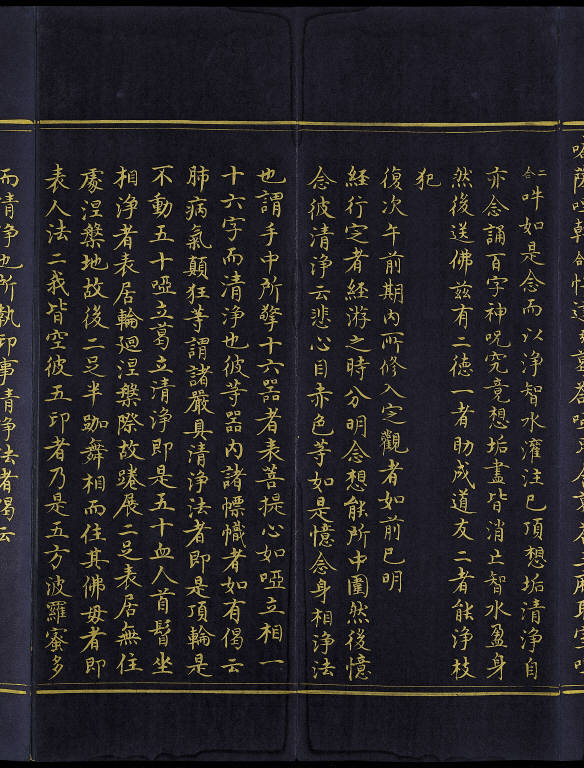 二合吽如是念而以淨智水灌注巳頂想垢清淨自
亦念誦百字神呪究竟想垢盡皆消上智水盈身
然後送佛兹有二德一者助成道友二者能淨枝
犯
復次午前期內所修入定觀者如前巳明
經行定者經游之時分明念想能所中圍然後憶
念彼清淨云悲心目赤色等如是憶念身相淨法
也謂手中所擎十六器者表菩提心如啞立相一
十六字而清淨也彼等器內諸幖幟者如有偈云
肺病氣顛狂等謂諸嚴具清淨法者即是頂輪是
不動五十啞立葛立清淨即是五十血人首髻坐
相淨者表居輪廻涅槃際故踡展二足表居無住
處涅槃地故後二足半跏舞相而住其佛毋者即
表人法二我皆空彼五印者乃是五方波羅蜜多
而清淨也所執印事清淨法者偈云